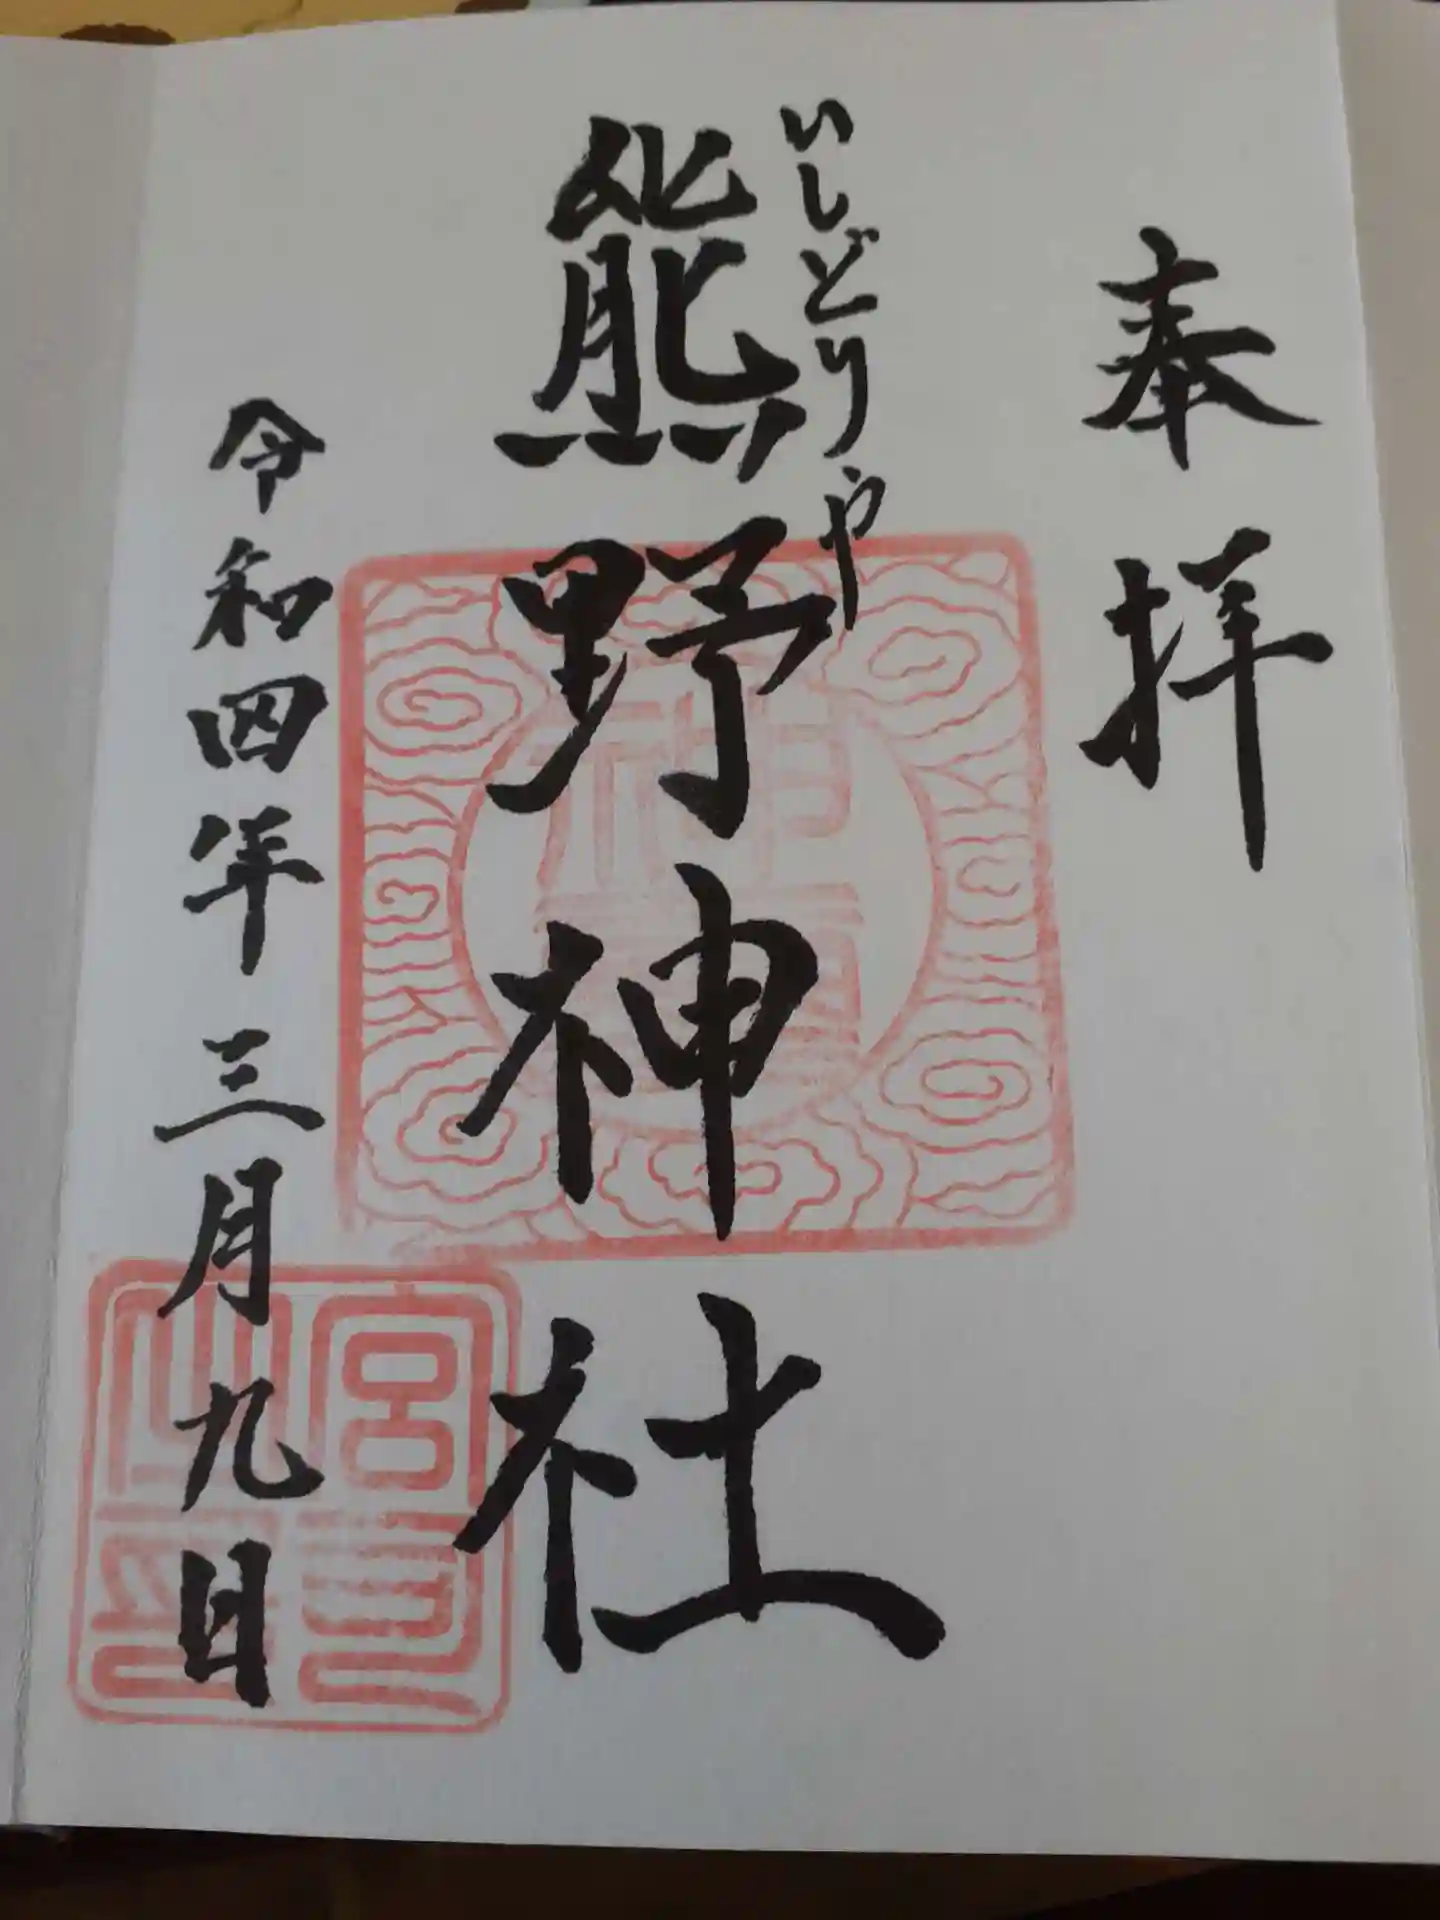 奉拝
いしどりや
熊野神社
令和四年三月九日